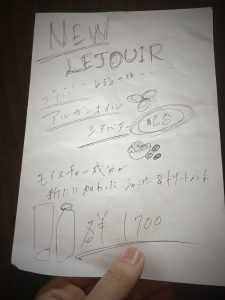 NEW
LEJOUIR
アルガンオイル
シアバター 配合
モイスチャー成分が
新たに加わった シャンプー&トリートメント
各¥1700